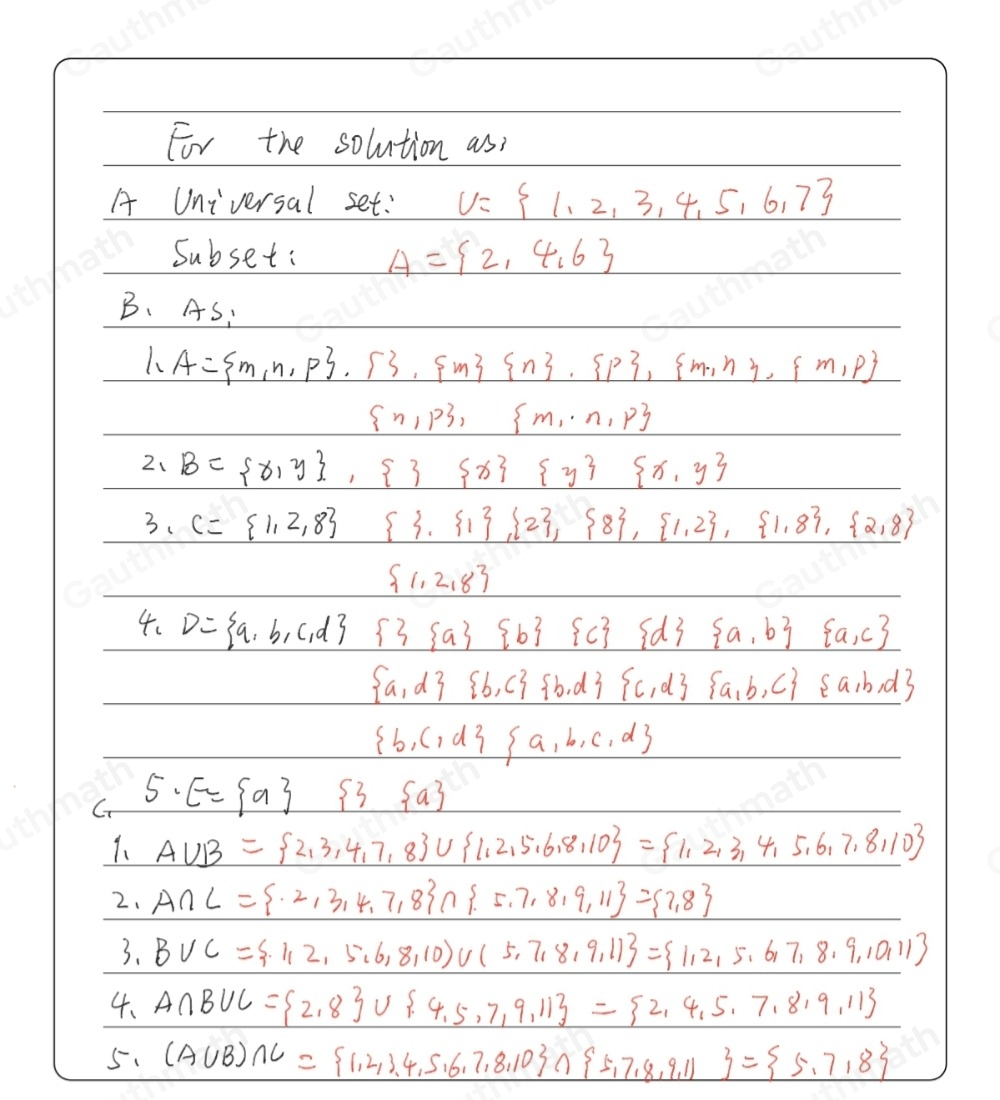 For the solution as:
A Universal set: U= { 1, 2, 3, 4, 5, 6, 7}
Subset: A = {2, 4, 6}
B. As,
1. A={m, n, p}. { }, {m} {n}. {p}, {m, n}, {m, p}
{n, p}, {m, n, p}
2. B= {x, y}, { } {x} {y} {x, y}
3. C= {1, 2, 8} { }. {1}, {2}, {8}, {1, 2}, {1, 8}, {2, 8}
{1, 2, 8}
4. D={a, b, c, d} { } {a} {b} {c} {d} {a, b} {a, c}
{a, d} {b, c} {b, d} {c, d} {a, b, c} {a, b, d}
{b, c, d} {a, b, c, d}
5. E= {a} { } {a}
C
1. A∪B = {2, 3, 4, 7, 8} ∪ {1, 2, 5, 6, 8, 10} = {1, 2, 3, 4, 5, 6, 7, 8, 10}
2. A∩C = {2, 3, 4, 7, 8} ∩ {5, 7, 8, 9, 11} = {7, 8}
3. B∪C = {1, 2, 5, 6, 8, 10) ∪ ( 5, 7, 8, 9, 11} = {1, 2, 5, 6, 7, 8, 9, 10, 11}
4. A∩B∪C = {2, 8} ∪ {4, 5, 7, 9, 11} = {2, 4, 5, 7, 8, 9, 11}
5. (A∪B)∩C = {1, 2, 3, 4, 5, 6, 7, 8, 10} ∩ {5, 7, 8, 9, 11 } = {5, 7, 8}